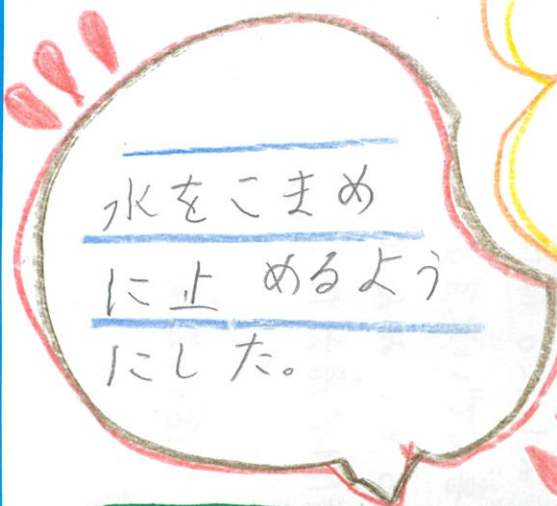 水をこまめ
に止めるよう
にした。